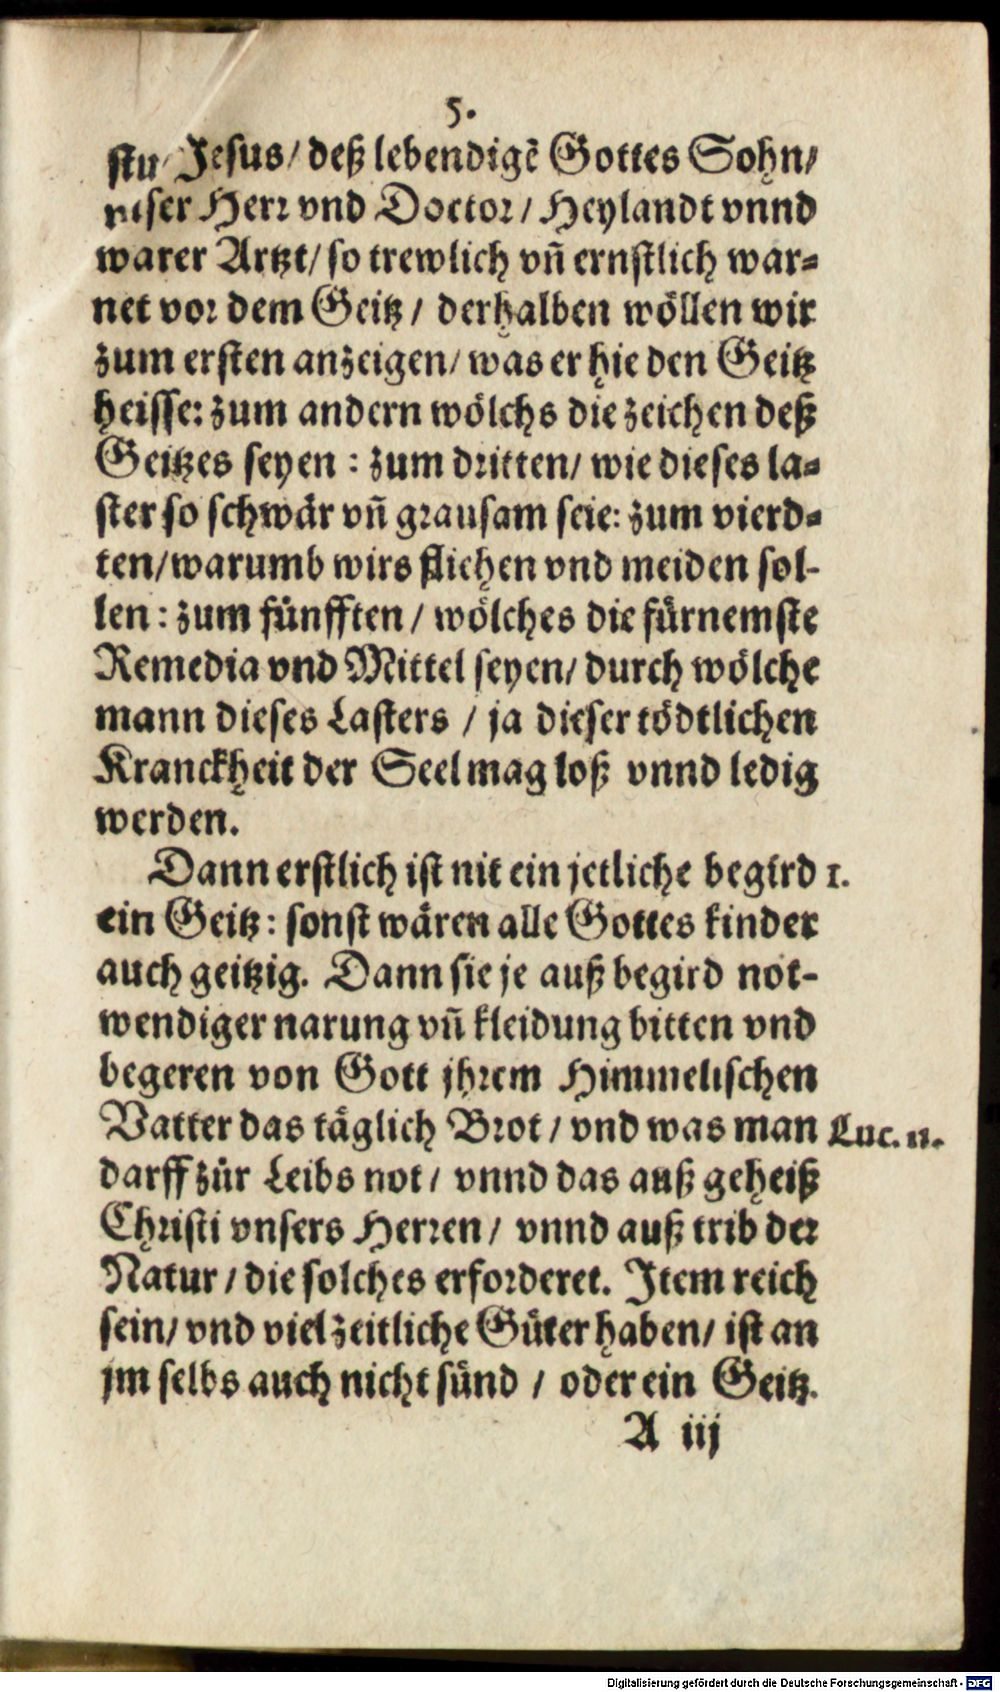 5.
stu Jesus/ deß lebendigē Gottes Sohn/
vnser Herr vnd Doctor/ Heylandt vnnd
warer Artzt/ so trewlich vn̄ ernstlich war-
net vor dem Geitz/ derhalben wöllen wir
zum ersten anzeigen/ was er hie den Geitz
heisse: zum andern wölchs die zeichen deß
Geitzes seyen: zum dritten/ wie dieses la-
ster so schwär vn̄ grausam seie: zum vierd-
ten/ warumb wirs fliehen vnd meiden sol-
len: zum fünfften/ wölches die fürnemste
Remedia vnd Mittel seyen/ durch wölche
mann dieses Lasters/ ja dieser tödtlichen
Kranckheit der Seel mag loß vnnd ledig
werden.
Dann erstlich ist nit ein jetliche begird 1.
ein Geitz: sonst wären alle Gottes kinder
auch geitzig. Dann sie je auß begird not-
wendiger narung vn̄ kleidung bitten vnd
begeren von Gott jhrem Himmelischen
Vatter das täglich Brot/ vnd was man Luc. 11.
darff zůr Leibs not/ vnnd das auß geheiß
Christi vnsers Herren/ vnnd auß trib der
Natur/ die solches erforderet. Item reich
sein/ vnd viel zeitliche Gůter haben/ ist an
jm selbs auch nicht sünd/ oder ein Geitz.
A iij
Digitalisierung gefördert durch die Deutsche Forschungsgemeinschaft - DFG